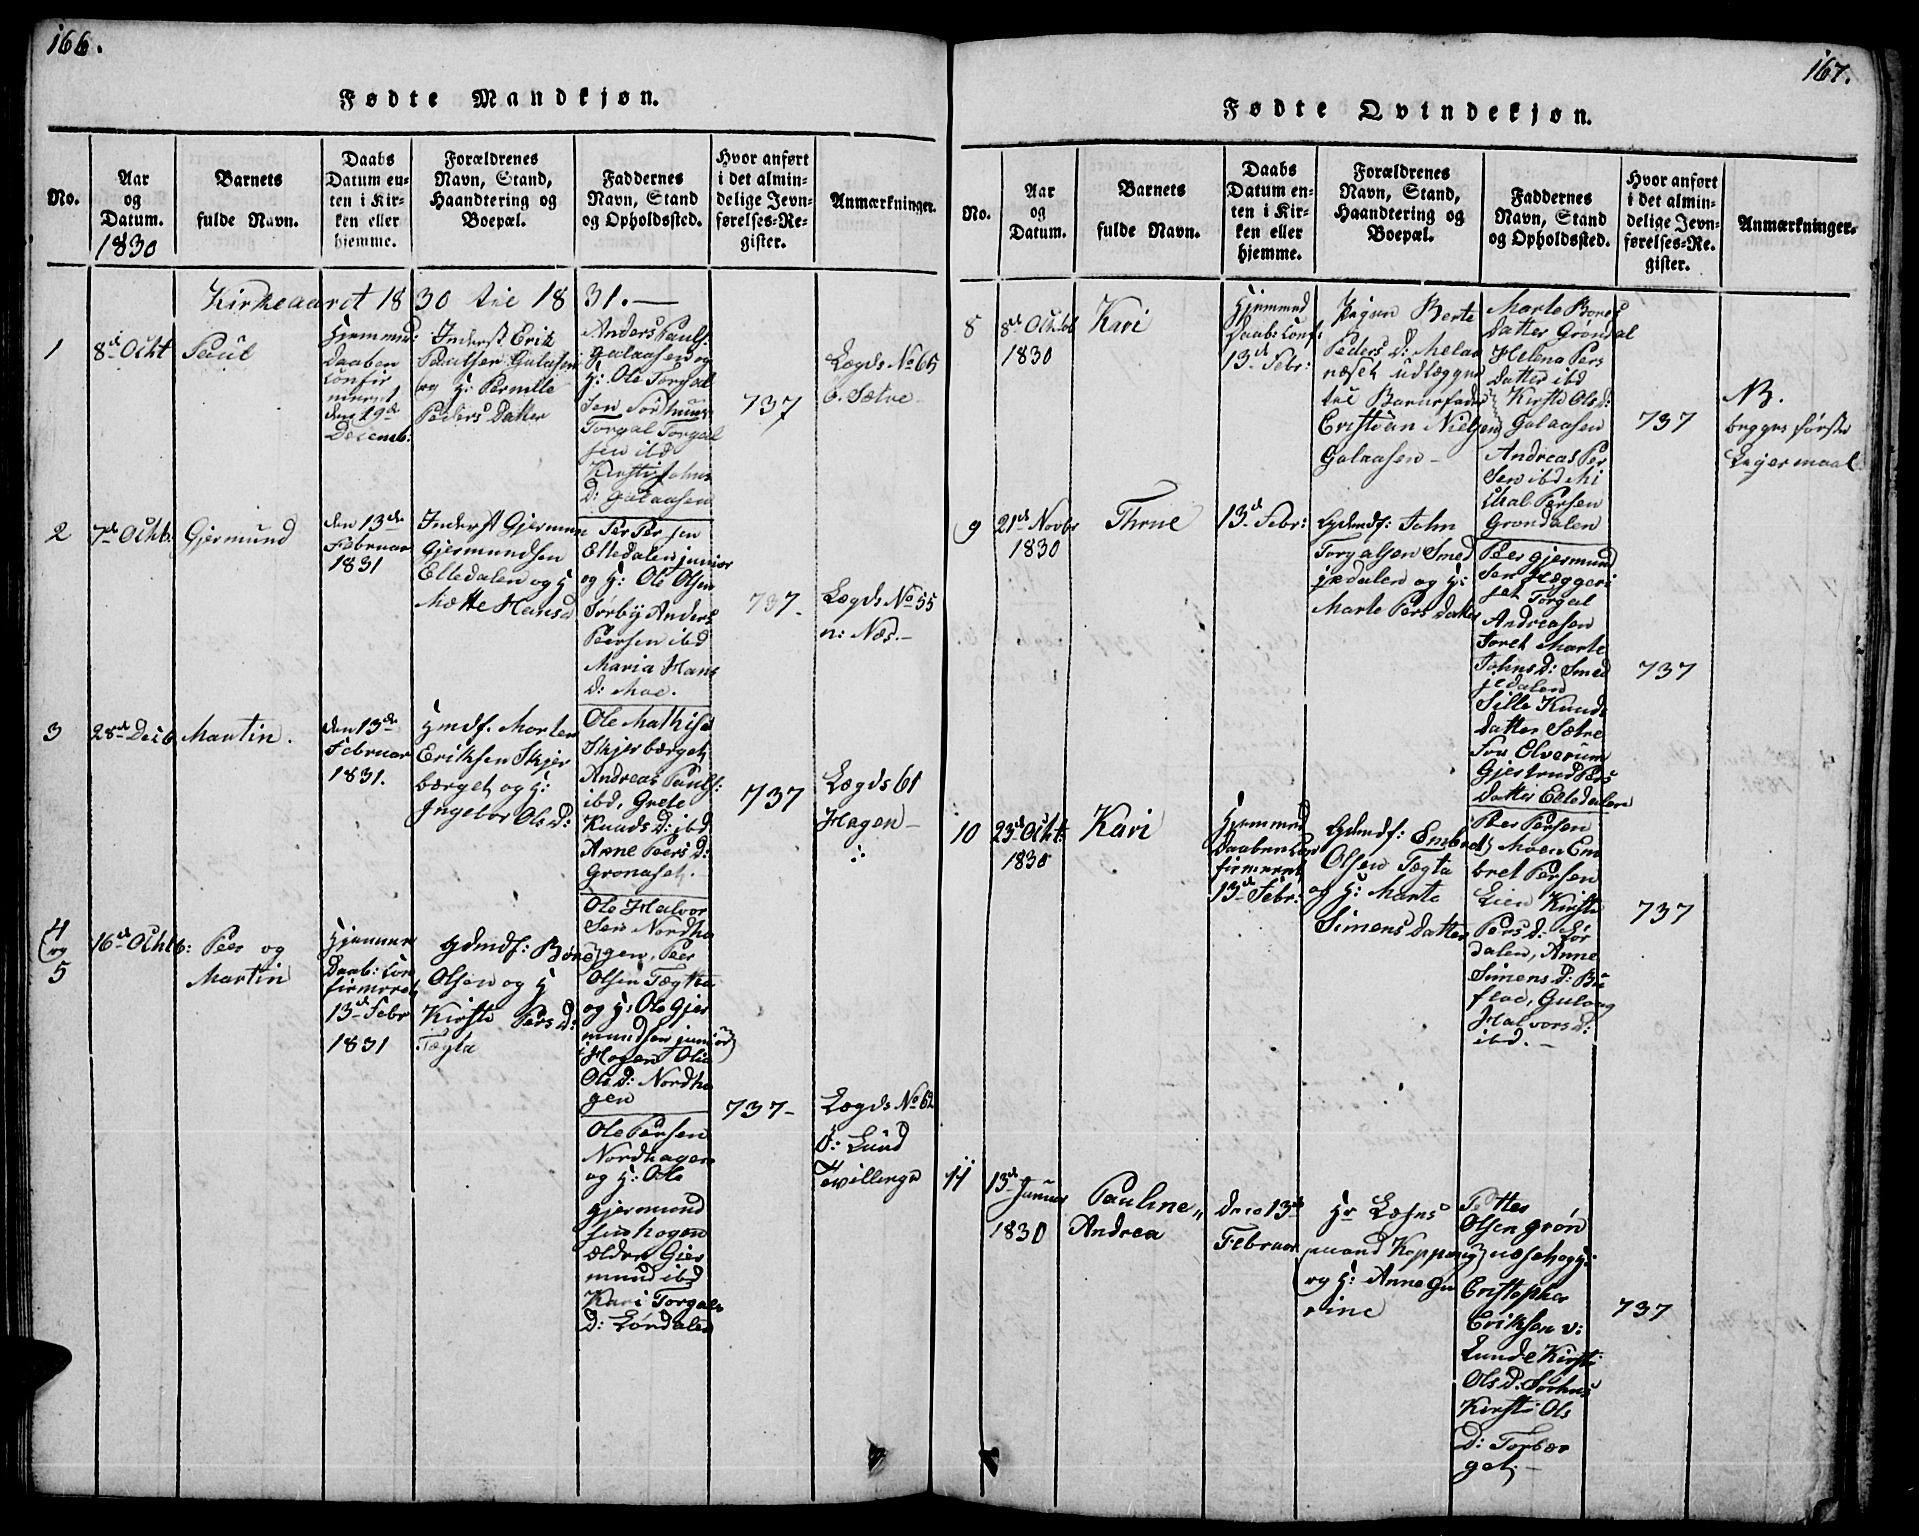 166.
Fødte Mandkjøn.
No.
Aar
og
Datum.
1830
Barnets
fulde Navn.
Daabs
Datum en-
ten i Kir-
ken eller
hjemme.
Forældrenes
Navn, Stand,
Haandtering og
Boepæl.
Faddernes
Navn, Stand
og Opholdssted.
Hvor anført
i det almin-
delige Jevn-
førelses-Re-
gister.
Anmærkninger.
Kirkeaaret 1830 til 1831.—
1
8de Octbr
Paul
Hjemmed:
Daaben
Confir
meret
den 19de
Decemb:
Inderst Erik
Paulsen Galaasen
og H: Pernille
Peders Datter
Anders Pauls:
Galaasen og
H: Ole Torgal
sen Sørhuus
Torgal Torgal
sen ibd
Kirsti Johns
D: Galaasen
737
Lægds No 65
o. Sætre
2
7de Octb.
Gjermund
den 13de
Februar
1831
Inderst Gjermun
Gjermundsen
Elledalen og H
Mætte Hansd
Per Persen
Elledalen junior
og H: Ole Olsen
Sørby Anders
Peersen ibd
Maria Hans
D: Moe.
737-
Lægds No 55
n: Næs.—
3
28de Decb.
Martin.
den 13de
Februar
1831.
Gmdf. Morten
Eriksen Skjer
bærget og H:
Ingebor Ols D:
Ole Mathise
Skjerbærget
Andreas Pauls:
ibd, Grete
Knuds D: ibd
Anne Peers D:
Gronaset.
737
Lægds 61
Hagen—
4
og
5
16de Octb:
Peer og
Martin
Hjemme
Daab: Con
firmeret
13de Febr
1831
Gdmdf: Børe
Olsen og H
Kirsti Pers D:
Tægta
Ole Halvor
Sen Nordha
gen, Peer
Olsen Tægta
og H: Ole Gjer
mundsen junior
Hagen Olia
Ols D: Nordha
gen
Ole Persen
Nordhagen
og H: Ole
Gjermund
sen hagen
ældre Gjer
mund ibd
Kari Torgals
D: Lørdalen
737-
Lægds No 62
Ø: Lund
Tvillinge
167.
Fødte Qvindekjøn.
No.
Aar
og
Datum.
Barnets
fulde Navn.
Daabs
Datum en-
ten i Kir-
ken eller
hjemme.
Forældrenes
Navn, Stand,
Haandtering og
Boepæl.
Faddernes
Navn, Stand
og Opholdssted.
Hvor anført
i det almin-
delige Jevn-
førelses-Re-
gister.
Anmærkninger.
8
8de Octbr
1830
Kari
Hjemmed
Daab: Conf:
13de Febr:
Pigen Berte
Peders D: Melaa
næset udlægger
til Barnefader
Cristian Nielsen
Galaasen—
Marte Børes
Datter Grøndal
Helena Pers
Datter ibd
Kirsti Ols D:
Galaasen
Andreas Per
Sen ibd Mi
chal Persen
Grondalen
737
NB.
begges første
Lejermaal
9
21de Novbr
1830
Thrue
13de Febr:
Gdmdf: John
Torgalsen Smed
jedalen og H:
Marte Pers Datter
Peer Gjermund
Sen Hæggeri
set Torgal
Andreasen
Toret Marte
Johns D: Smed
jedalen
Sille Knuds
Datter Sætre
fra Elverum
Gjertrud Pers
Datter Elledalen
737
10
23de Octbr:
1830
Kari
Hjemmed
Daaben Con
firmeret
13de Febr:
Gdmdf: Embret
Olsen Tægta
og H: Marte
Simens Datter
Peer Persen
Moen Em
bret Persen
Lien Kirsti
Pers D: før
dalen, Anne
Simens D: Bu
floe, Gulaug
Halvors D:
ibd.—
737
11
13de Januar
1830
Pauline
Andrea
den 13de
Februar
Hr Læhns
mand Koppang
og H: Anne Gu
rine
Petter
Olsen Grøn
næsehagg:
Cristopher
Eriksen v:
Lunde Kirsti
Ols D: Sorhus
Kirsti Ols
D: Torbær
get—
737